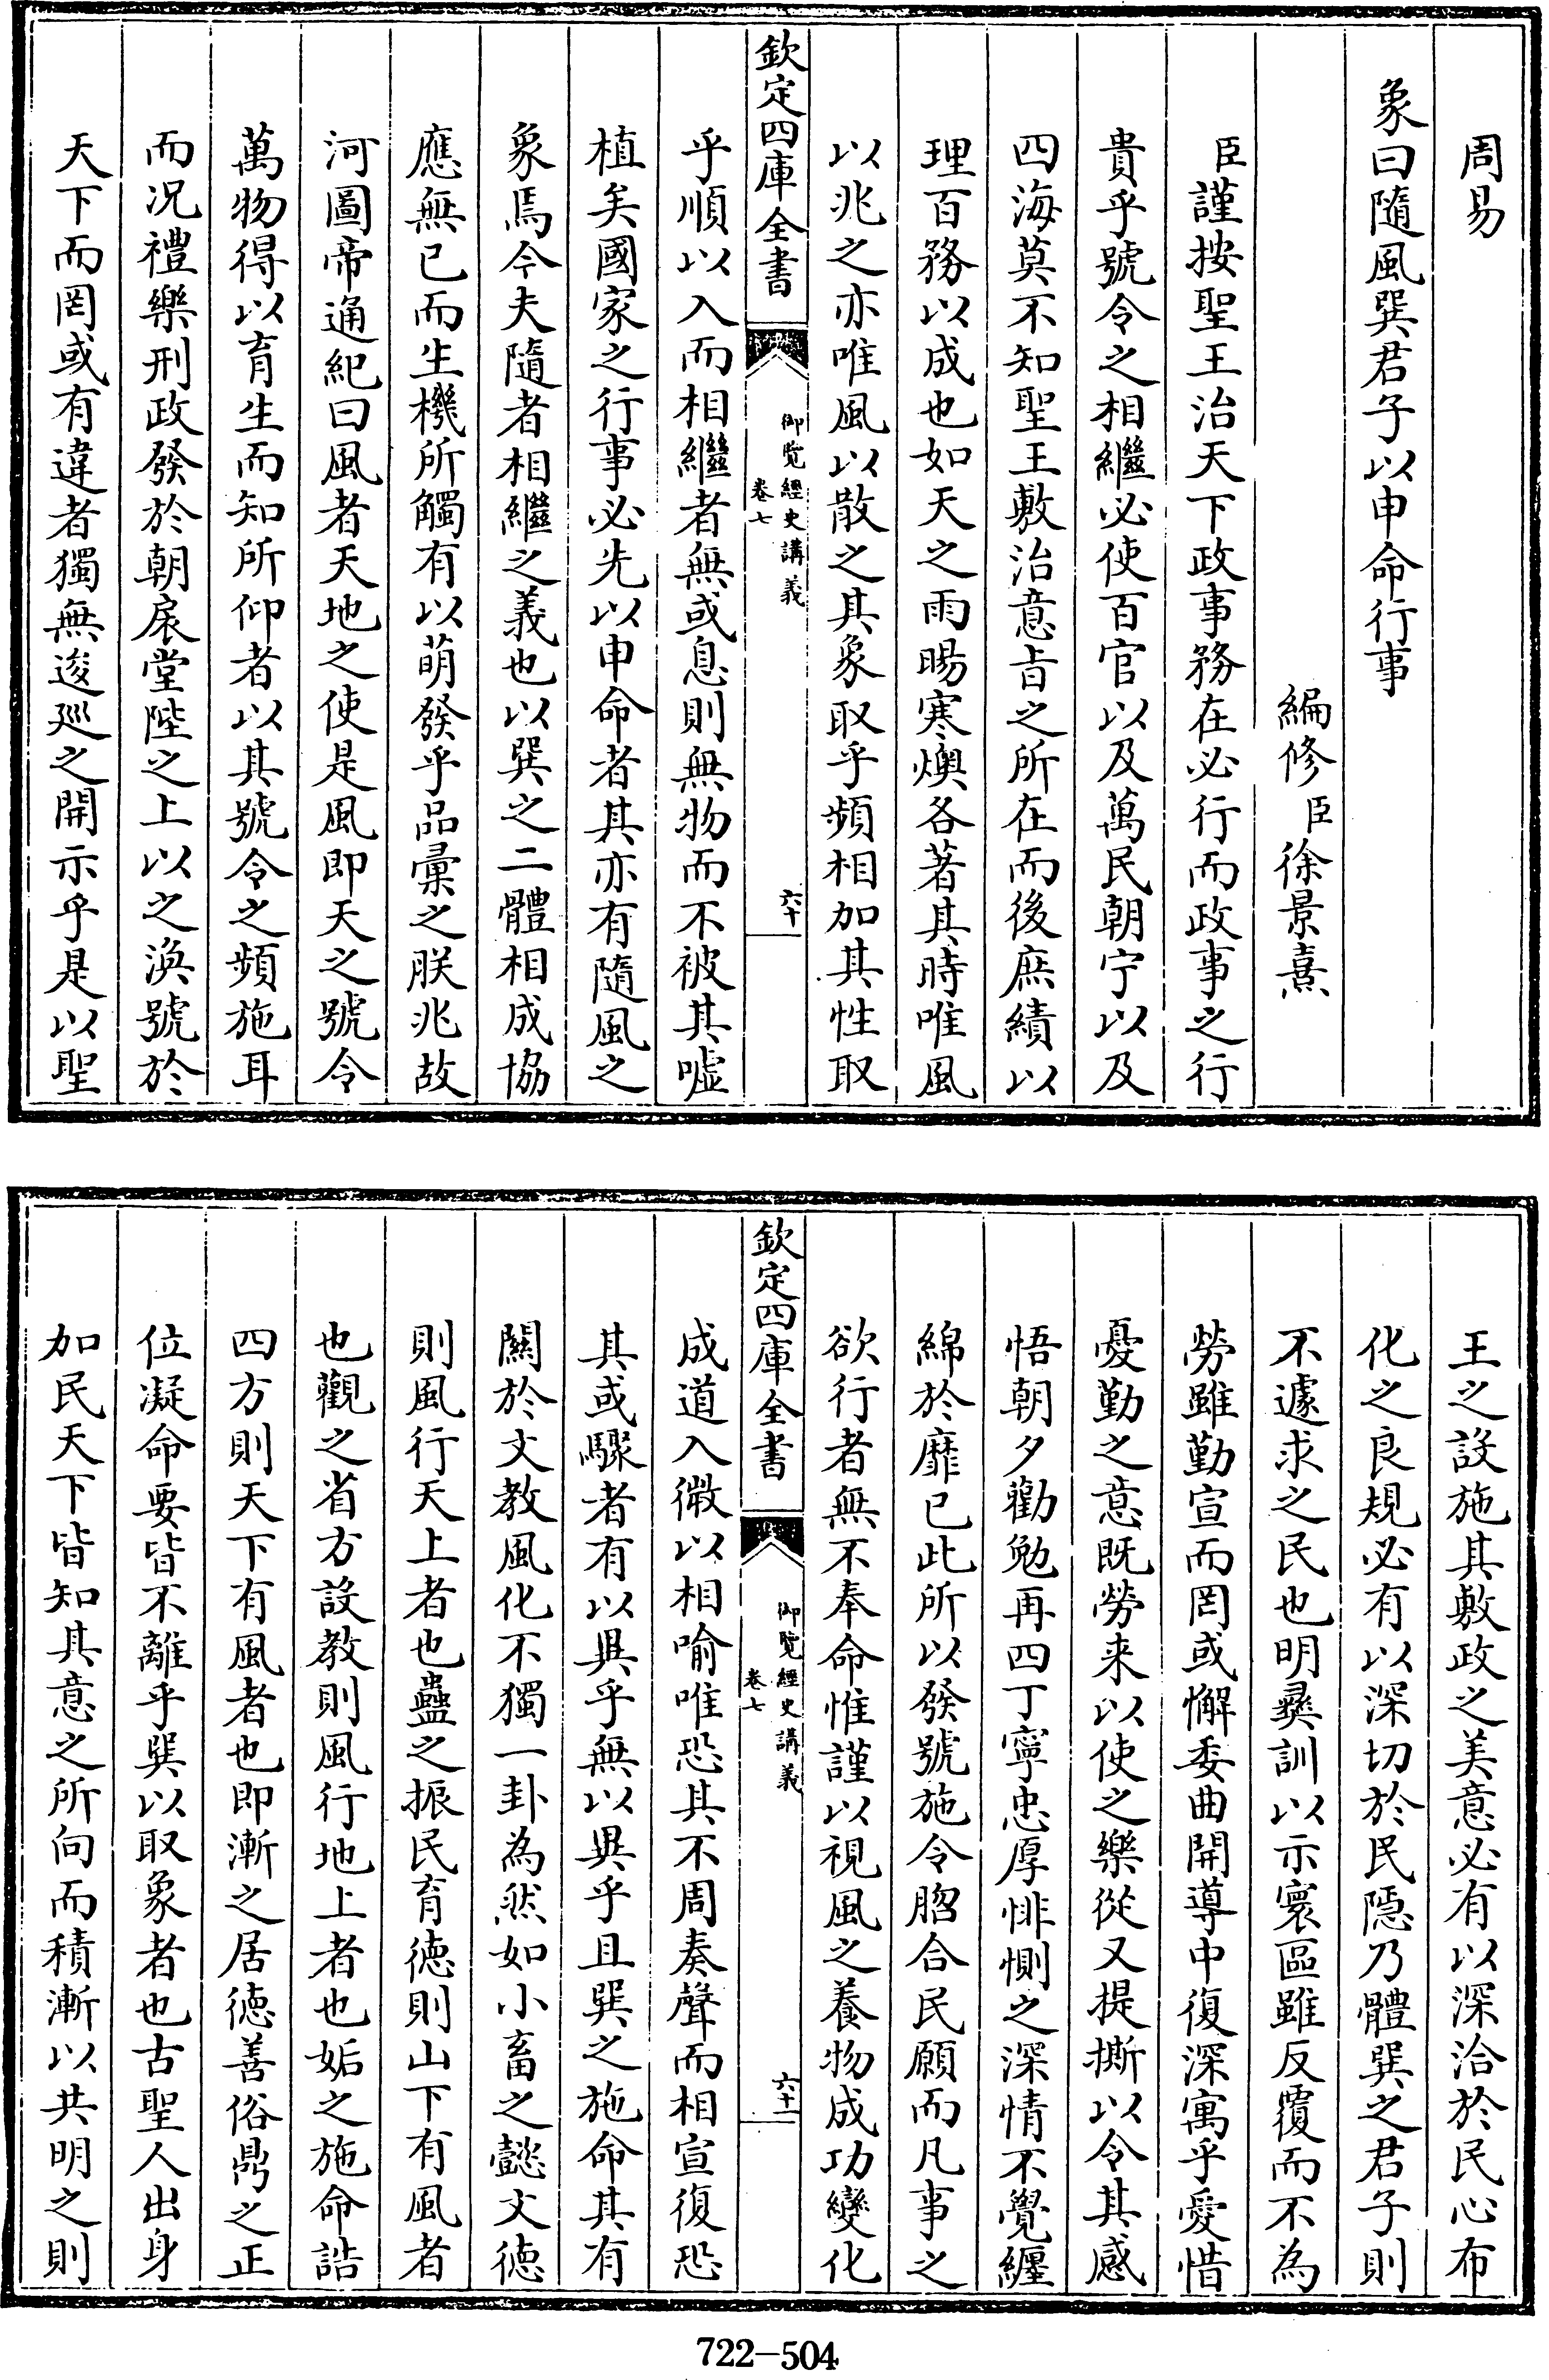 周易
象曰隨風巽君子以申命行事
編修臣徐景熹
臣謹按聖王治天下政事務在必行而政事之行
貴乎號令之相繼必使百官以及萬民朝宁以及
四海莫不知聖王敷治意旨之所在而後庶績以
理百務以成也如天之雨暘寒燠各著其時唯風
以兆之亦唯風以散之其象取乎頻相加其性取
欽定四庫全書
御覽經史講義
卷七
六十
乎順以入而相繼者無或息則無物而不被其噓
植矣國家之行事必先以申命者其亦有隨風之
象焉今夫隨者相繼之義也以巽之二體相成協
應無已而生機所觸有以萌發乎品彙之朕兆故
河圖帝通紀曰風者天地之使是風即天之號令
萬物得以育生而知所仰者以其號令之頻施耳
而况禮樂刑政發於朝扆堂陛之上以之渙號於
天下而罔或有違者獨無逡巡之開示乎是以聖
王之設施其敷政之美意必有以深洽於民心布
化之良規必有以深切於民隱乃體巽之君子則
不遽求之民也明彝訓以示寰區雖反覆而不為
勞雖勤宣而罔或懈委曲開導中復深寓乎愛惜
憂勤之意既勞来以使之樂從又提撕以令其感
悟朝夕勸勉再四丁寧忠厚悱惻之深情不覺纏
綿於靡已此所以發號施令脗合民願而凡事之
欲行者無不奉命惟謹以視風之養物成功變化
欽定四庫全書
御覽經史講義
卷七
六十一
成道入微以相喻唯恐其不周奏聲而相宣復恐
其或驟者有以異乎無以異乎且巽之施命其有
關於文教風化不獨一卦為然如小畜之懿文徳
則風行天上者也蠱之振民育徳則山下有風者
也觀之省方設教則風行地上者也姤之施命誥
四方則天下有風者也即漸之居徳善俗鼎之正
位凝命要皆不離乎巽以取象者也古聖人出身
加民天下皆知其意之所向而積漸以共明之則
722—504